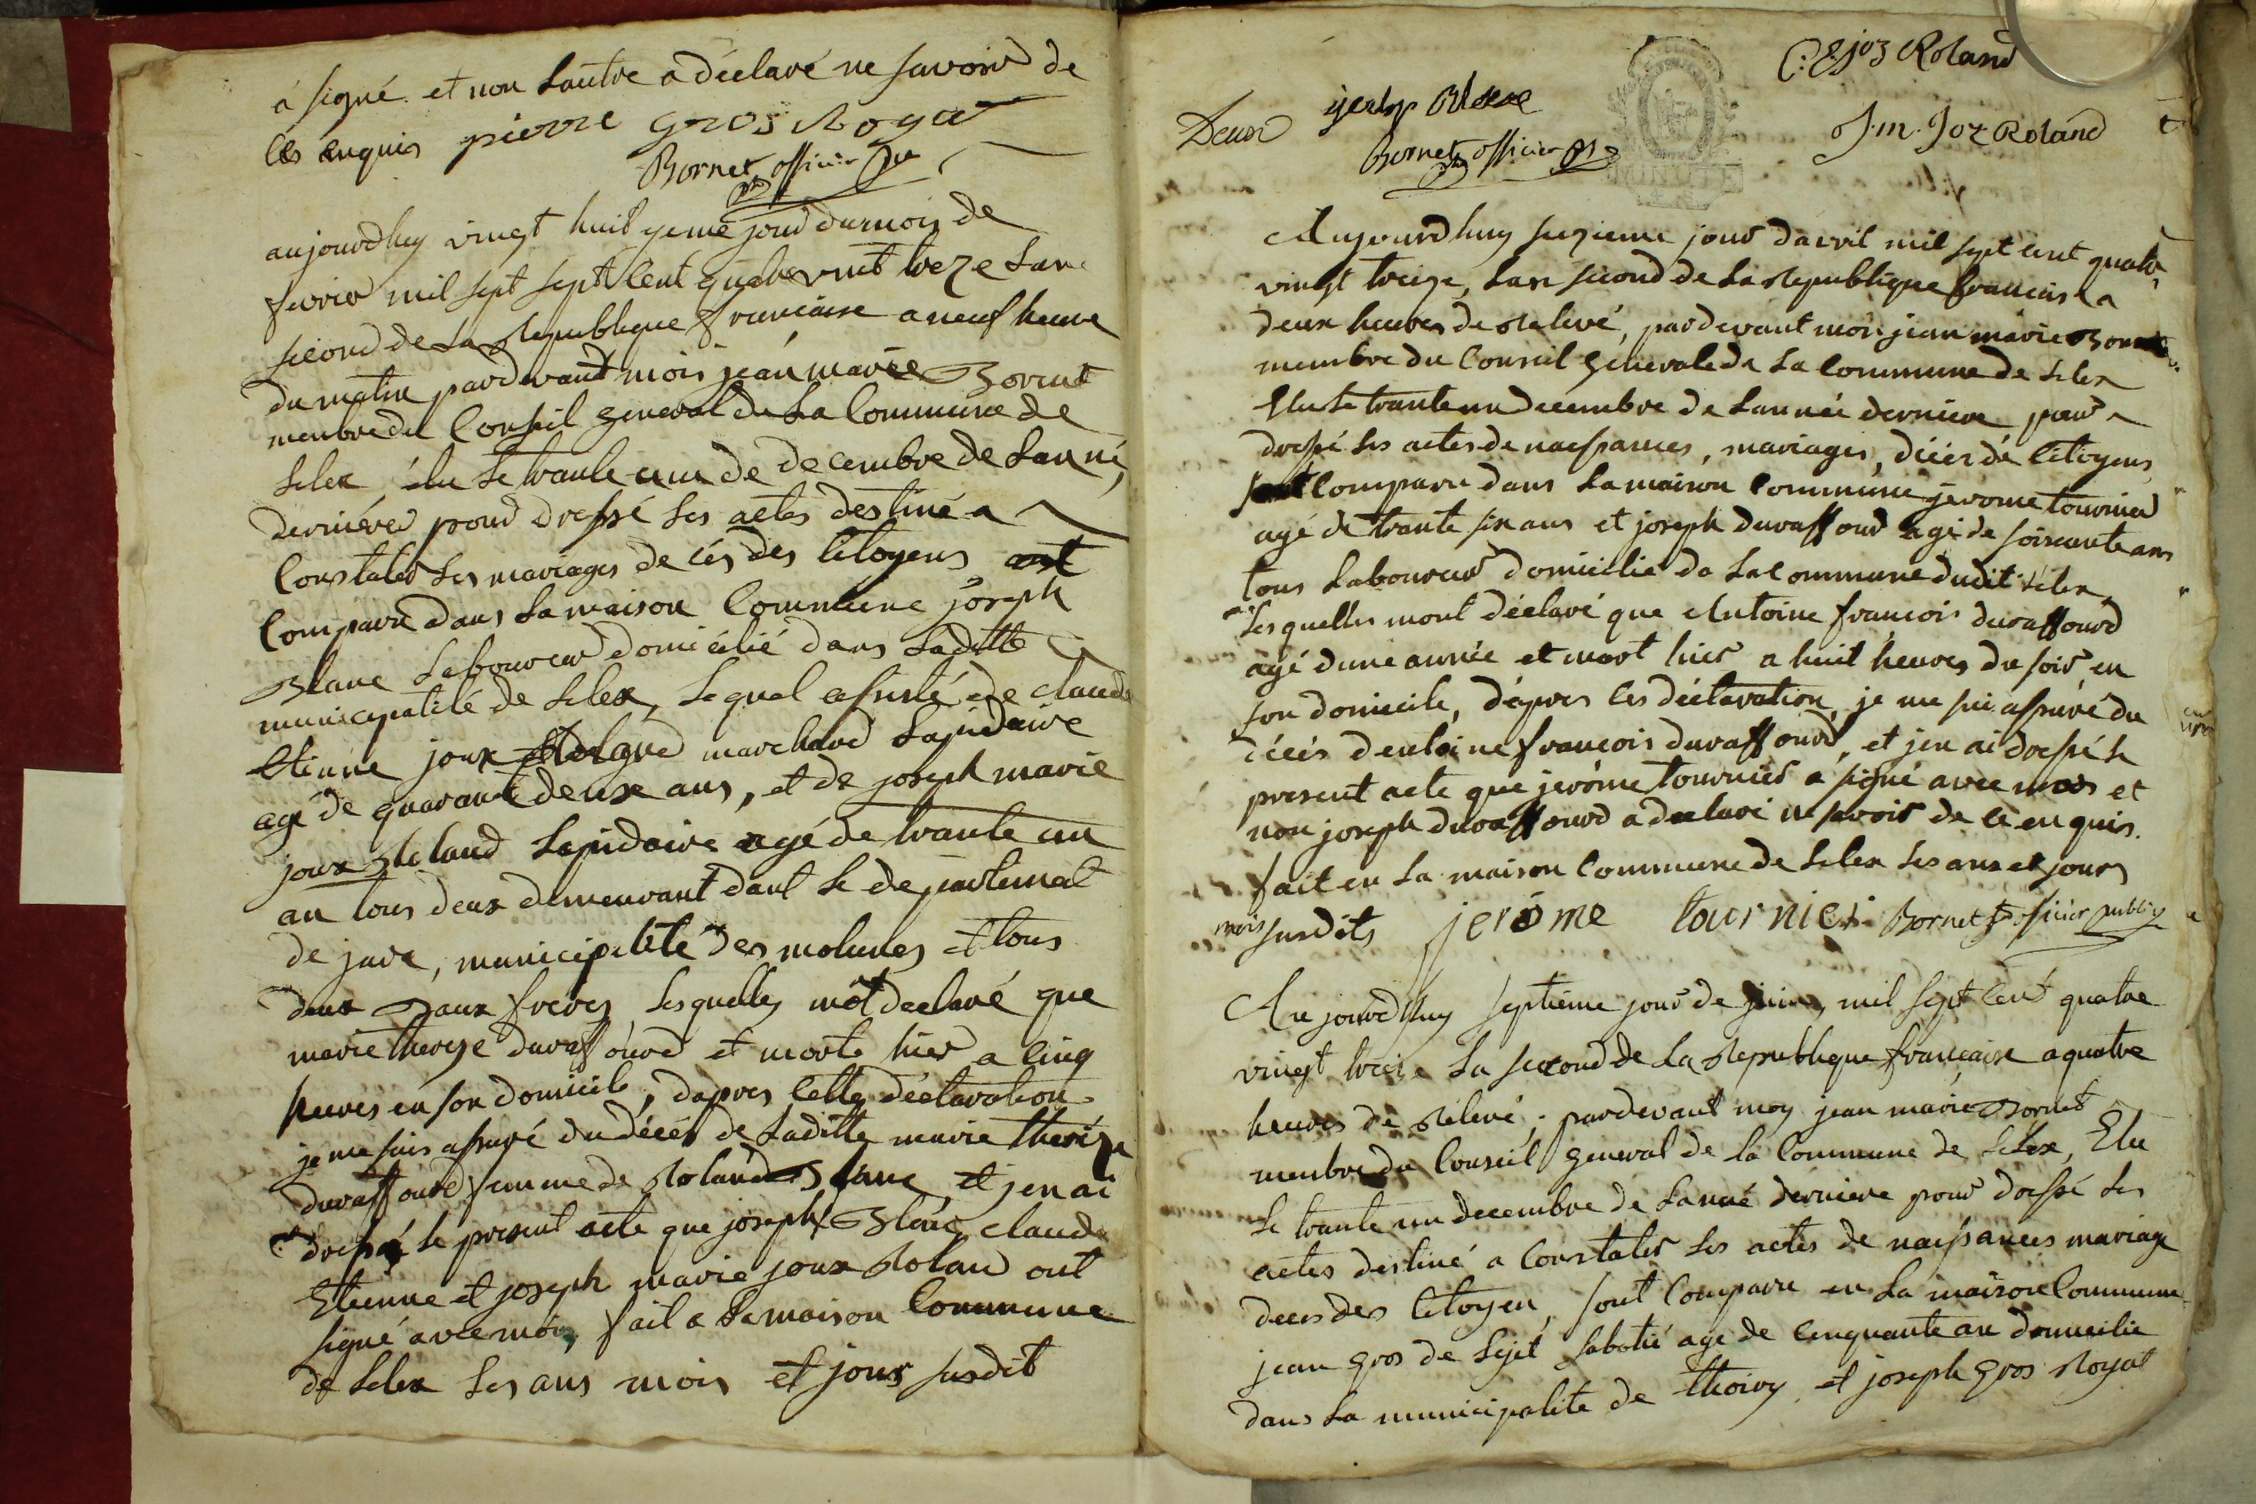 a signé et non Lautre a déclaré ne savoir de
ces enquis pierre gros Royat
Bornet officier
aujourdhuy vingt huit yeme jour dumois de
fevrier mil sept sept Cent quatrevint treze Lan
second de La Republique francaise a neuf heure
du matin pardevant mois jean marie Bornet
menbre du Conseil general de La Commune de
Lelex, élu Le trante un de decembre de Lanné,
derniere pour dressé Les actes destiné a
Constater Les mariages décés des Citoyens ont
Comparu dans La maison Commune joseph
Blanc Laboureur domicilié dans Laditte
municipalité de Lelex, Lequel assisté de claude
Etienne joux Rolgrd marchand Lapidaire
agé de quarante deux ans, et de joseph marie
joux Roland Lapidaire agé de trante un
an tous deux demeurant dant Le departemet
de jura, municipalite des molunes et tous
deux Baux freres Lesquelles mot declaré que
marie thereze duraffourd et morte hier a Cinq
heures en son domicile, dapres Cette déclaration
je me suis assuré du décés de Laditte marie theréze
duraffourd femme de Roland Blanc et jen ai
dressé le present acte que joseph Blanc claude
Etienne et joseph marie joux Rolan ont
signé avec moi, fait a La maison Commune
de Lelex Les ans mois et jour susdit
C: E joz Roland
Deux
J. m. Joz Roland
Bornet officier
Aujourdhuy sezieme jour davril mil sept cent quatr
vingt treize, Lan second de La Republique francaise a
deux heures de Relevé, pardevant moi jean marie Bornet
membre du Conseil generale de La Commune de Lelex
Elu Le trante un decembre de Lannée derniere pour
dressé Les actes de naissances, mariages, décés dé Citoyens
Comparu dans La maison Commune jerome tournier
agé de trante six ans et joseph duraffourd agé de soixcante ans
tous Laboureur domicilié da La Commune dudit Lelex
Lesquelles mont déclaré que Antoine francois duraffourd
agé dune année et mort hier a huit heures du soir en
son domicile, dápres Les déclaration, je me sui assuré du
décés dentoine francois duraffourd, et jen ai dressé le
present acte que jeróme tournier a signé avec moi et
non joseph duraffourd a declaré ne savoir de ce en quis.
fait en La maison Commune de Lelex Les ans et jours
mois susdits jeróme tournier Bornet officier public
Aujourdhuy septième jour de juin, mil sept Cent quatre
vingt treize La second de La Republique francaise a quatre
heures de Rélevé, pardevant moy jean marie Bornet
menbre du Conseil general de La Commune de Lelex, Elu
Le trante un decembre de Lanné derniere pour dressé Les
actes destiné a Constater Les actes de naissances mariage
deces des Citoyen, sont Comparu en La maison Commune
jean gros de Lejet sabotié agé de Cinquante an domicilie
dans La municipalite de thoiry, et joseph gros Royat